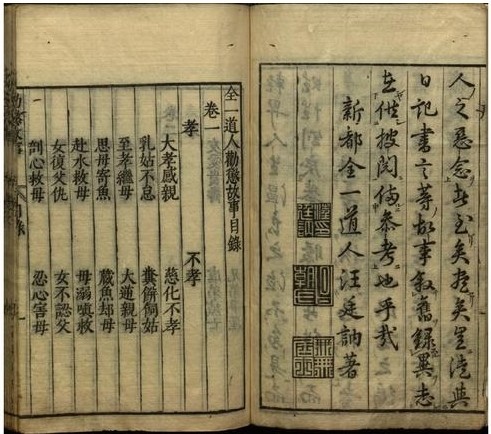 人之惡念者至矣盡矣豈徒與
日記書言等故事叙舊錄異志
在供披閱備參考地乎哉
新都全一道人汪廷訥著
全一道人勸懲故事目錄
卷一
孝 不孝
大孝感親 慈化不孝
乳姑不怠 糞餅飼姑
至孝繼母 大逆親母
思母寄魚 藏魚却母
赴水救母 母溺嗔救
女復父仇 女不認父
剖心救母 忍心害母